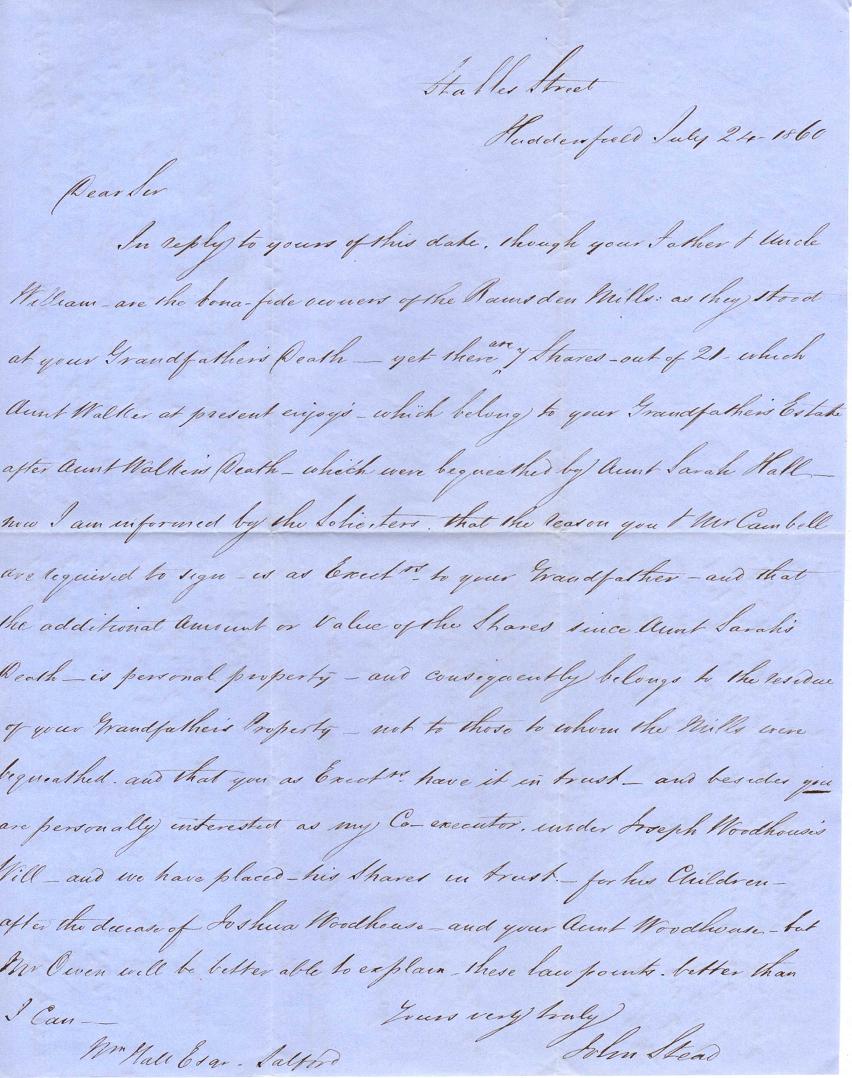 Stables Street
Huddersfield July 24 - 1860
Dear Sir
In reply to yours of this date, though your Father & Uncle
William - are the bona-fide owners of the Ramsden Mills: as they stood
at your Grandfather's Death — yet there are 7 Shares - out of 21 - which
Aunt Walker at present enjoys - which belong to your Grandfather's Estate
after Aunt Walker's Death - which were bequeathed by Aunt Sarah Hall —
now I am informed by the Soliciters, that the reason you & Mr Cambell
are required to sign - is as Exectrs. to your Grandfather - and that
the additional Amount or Value of the Shares since Aunt Sarah's
Death — is personal property - and consequently belongs to the residue
of your Grandfather's Property - not to those to whom the Mills were
bequeathed. and that you as Exectrs. have it in trust - and besides you
are personally interested as my Co-executor, under Joseph Woodhouse's
Will - and we have placed - his Shares in trust. - for his Children -
after the decease of Joshua Woodhouse - and your Aunt Woodhouse - but
Mr Owen will be better able to explain - these law points. better than
I Can —
Yours very truly
John Stead
Wm Hall Esqr. Salford